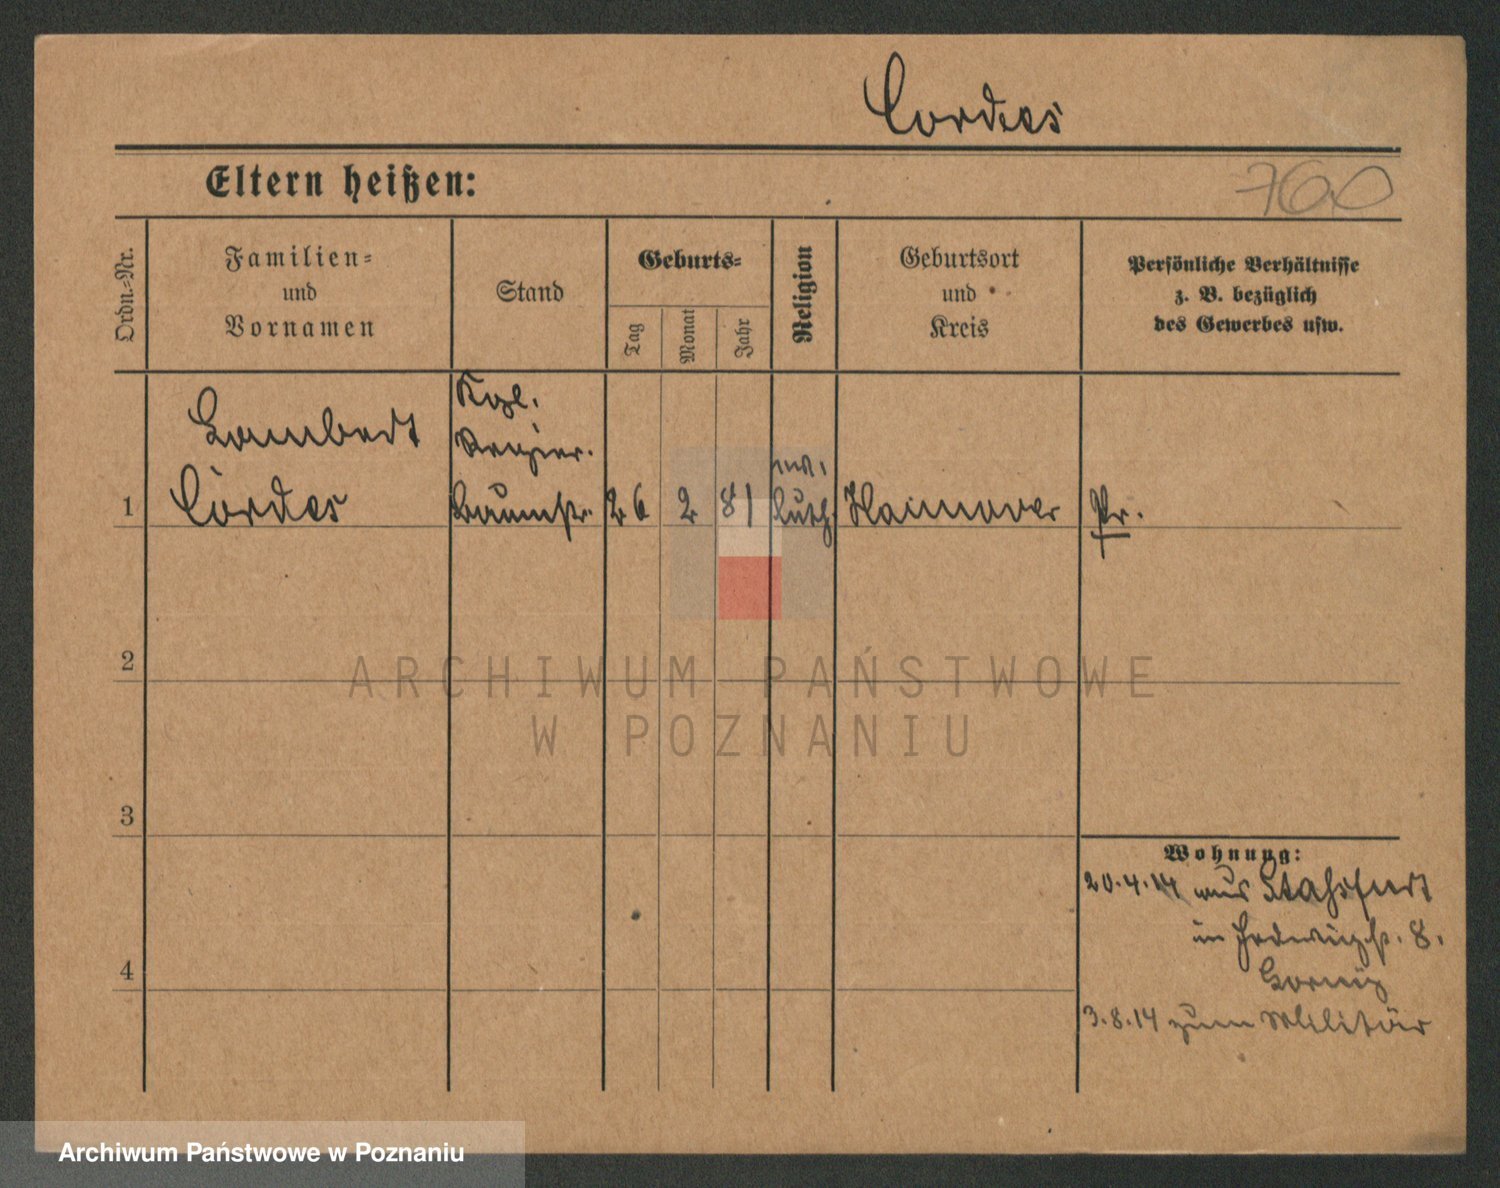 Cordes
Eltern heißen:
760
Ordn.-Nr.
Familien-
und
Vornamen
Stand
Geburts-
Tag
Monat
Jahr
Religion
Geburtsort
und
Kreis
Persönliche Verhältnisse
z. B. bezüglich
des Gewerbes usw.
1
Lambert
Cordes
Kgl.
Regier.
Baumstr.
26
2
81
ev.
luth.
Hannover
Pr.
2
3
4
Wohnung:
20.4.14 aus Staßfurt
in Hedwigstr. 8.
3.8.14 zum Militär
ARCHIWUM PAŃSTWOWE
W POZNANIU
Archiwum Państwowe w Poznaniu